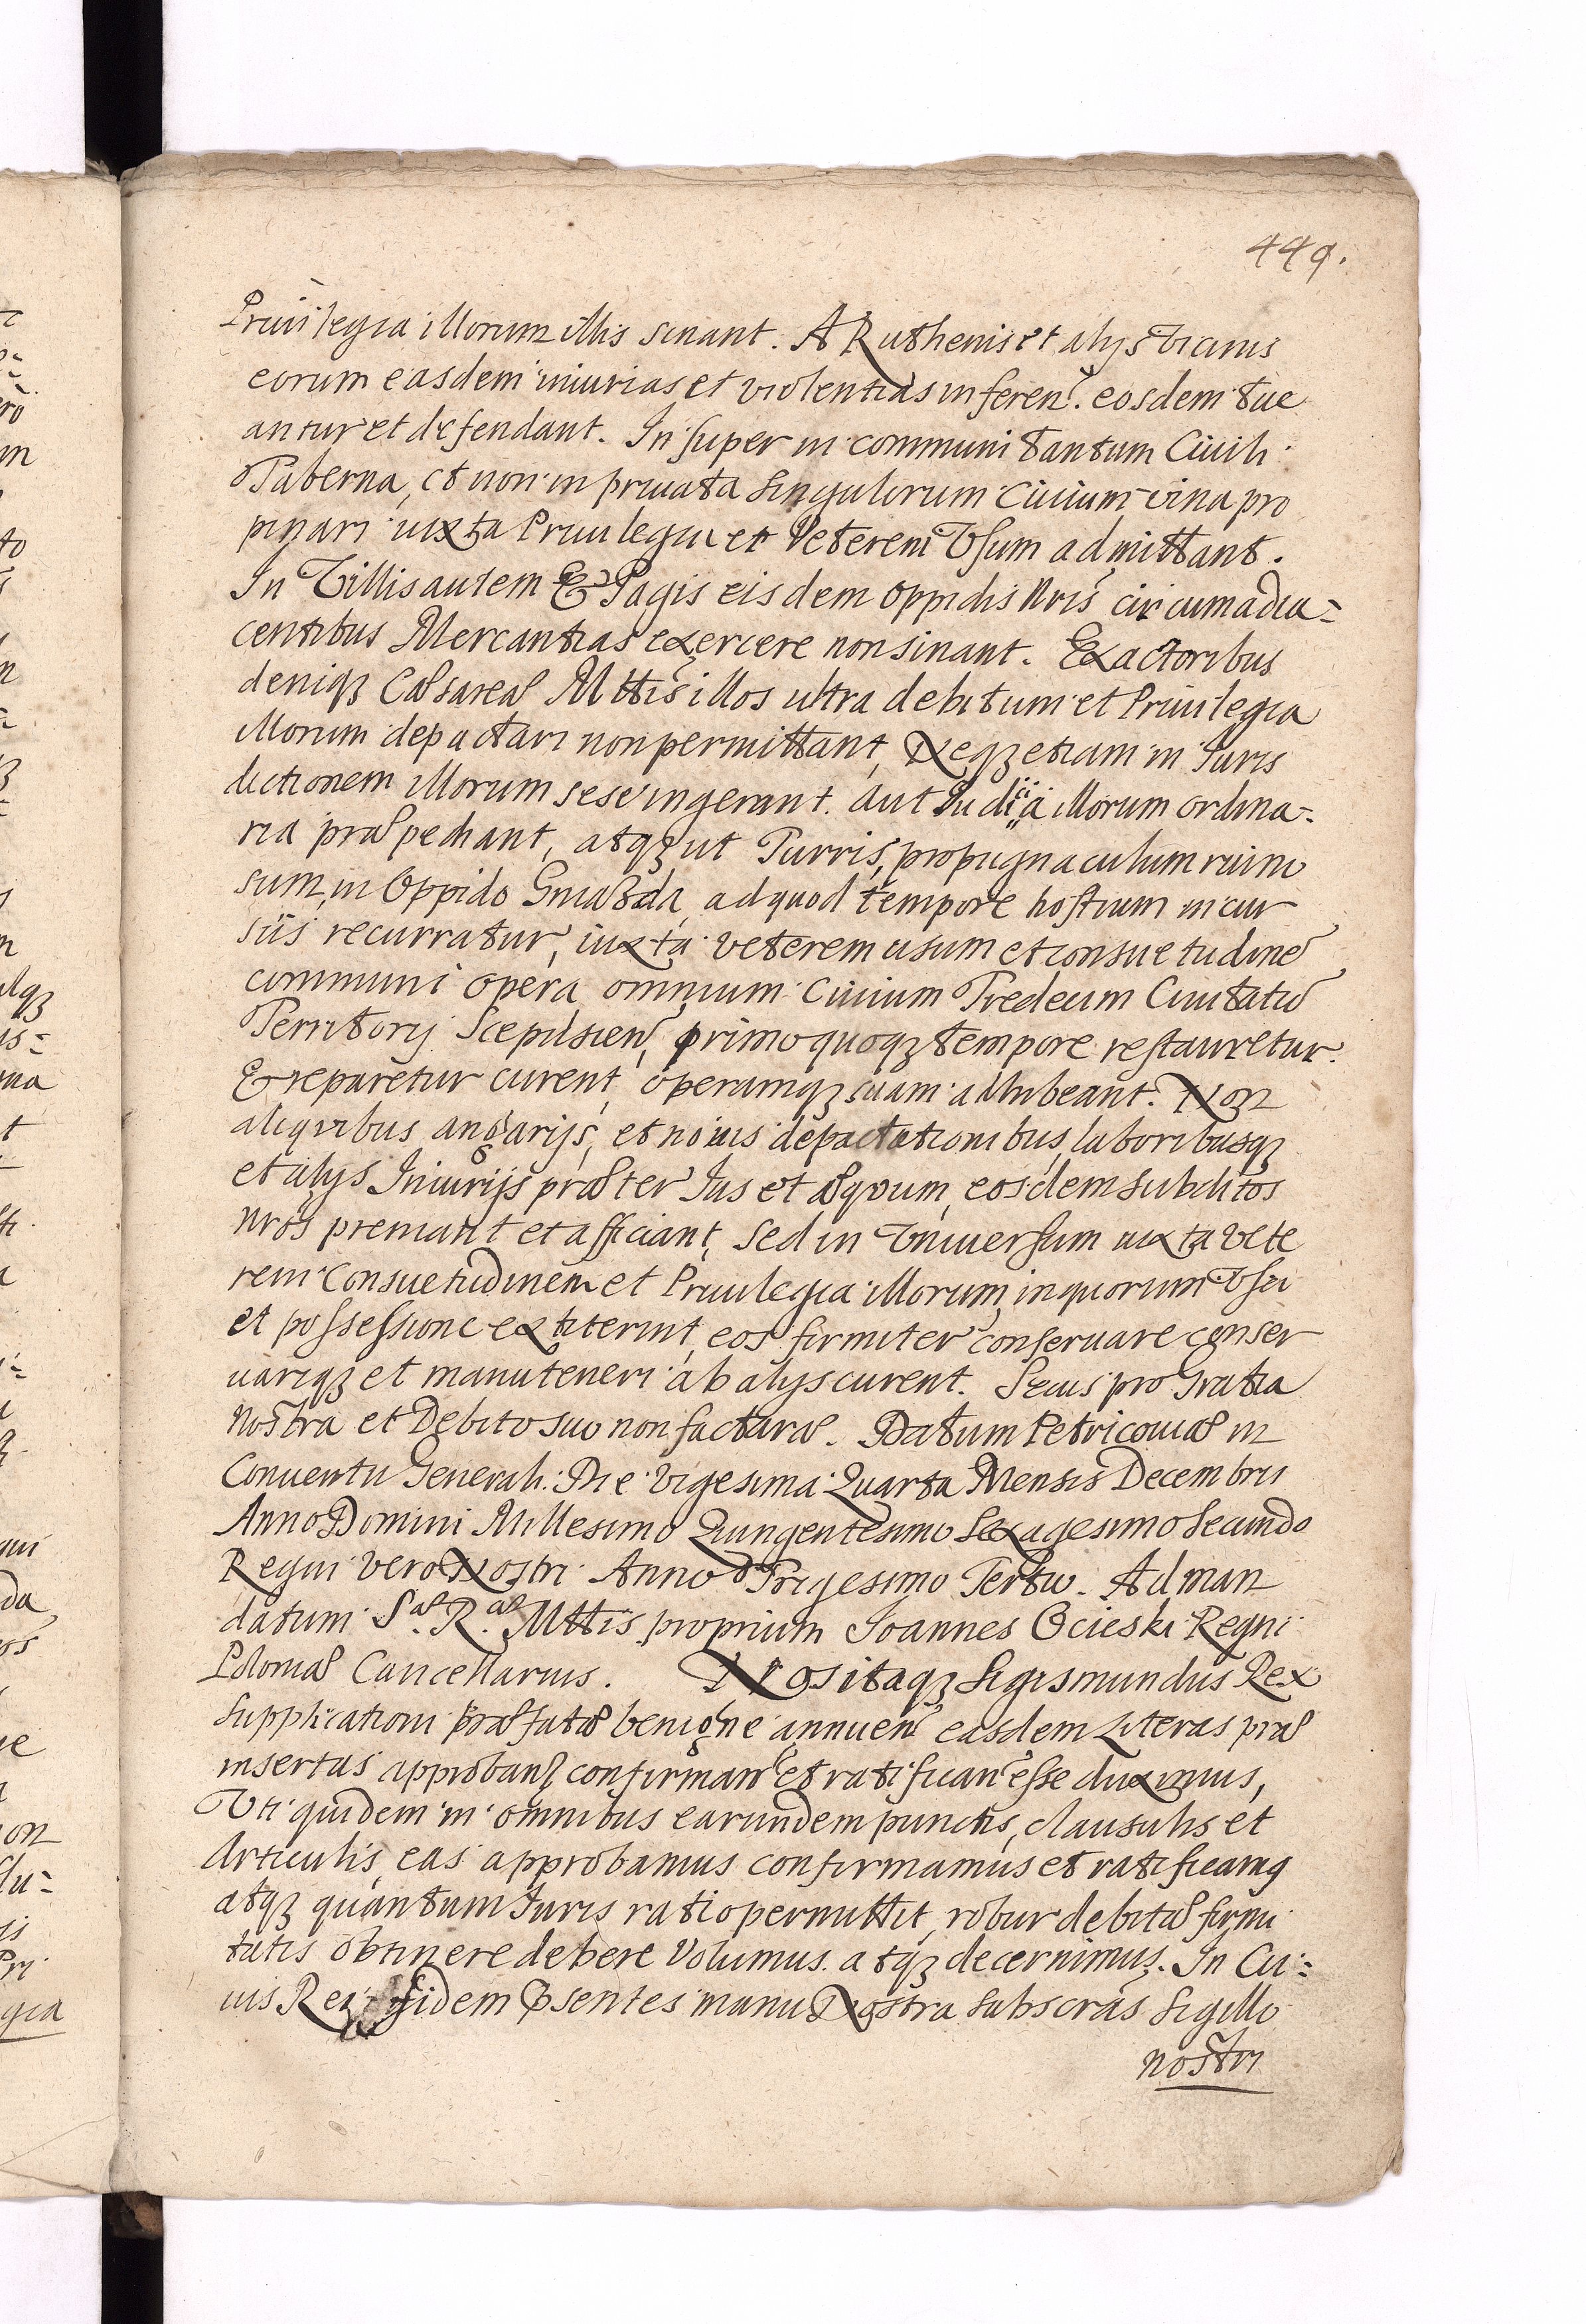 449.
Priuilegia illorum illis sinant. A Ruthenis et alijs vicinis
eorum easdem iniurias et violentias inferen̄. eosdem tue
antur et defendant. Insuper in communi tantum Ciuili
Taberna, et non in priuata singulorum Ciuium vina pro
pinari iuxta Priuilegiu et Veterem Vsum admittant.
In Villis autem & Pagis eisdem Oppidis Nris̄ circumadia=
centibus Mercantias exercere non sinant. Exactoribus
deniqꝫ Cæsareæ Mttis illos ultra debitum et Priuilegia
illorum depactari non permittant, Neqꝫ etiam in Juris
dictionem illorum sese ingerant. Aut Judiia illorum ordina=
ria præpediant, atqꝫ ut Turris, propugnaculum ruino
sum, in Oppido Gniazda, ad quod tempore hostium incur
siis recurratur, iuxta veterem usum et consuetudinē
communi opera omnium Ciuium Tredecim Ciuitatū
Territorij Scepusien̄, primo quoqꝫ tempore restauretur.
& reparetur curent, operamqꝫ suam adhibeant. Non
aliquibus angarijs, et nouis depactationibus, laboribusqꝫ
et alijs Iniurijs præter Ius et æquum, eosdem subditos
nrōs premant et afficiant, sed in Vniuersum iuxta vete
rem Consuetudinem et Priuilegia illorum, in quorum Vsu
et possessione extiterint, eos firmiter conseruare conser
uariqꝫ et manuteneri ab alijs curent. Secus pro Gratia
nostra et Debito suo non facturæ. Datum Petricouiæ in
Conuentu Generali. Die Vigesima Quarta Mensis Decembris
Anno Domini Millesimo Quingentesimo Sexagesimo Secundo
Regni vero Nostri Anno Trigesimo Tertio. Ad man
datum S.æ R.æ Mttis proprium Joannes Ocieski Regni
Poloniæ Cancellarius. Nos itaqꝫ Sigismundus Rex
Supplicationi præfatæ benigne annuen̄ easdem Literas præ
insertas approban̄ confirman̄ et ratifican̄ esse duximus,
Vti quidem in omnibus earundem punctis, clausulis et
Articulis, eas approbamus confirmamus et ratificamꝯ
atqꝫ quantum Juris ratio permittit, robur debitæ firmi
tatis obtinere debere Volumus atqꝫ decernimus. In Cu=
ius Rei fidem p̄sentes manu Nostra subscrās Sigillo
nostri